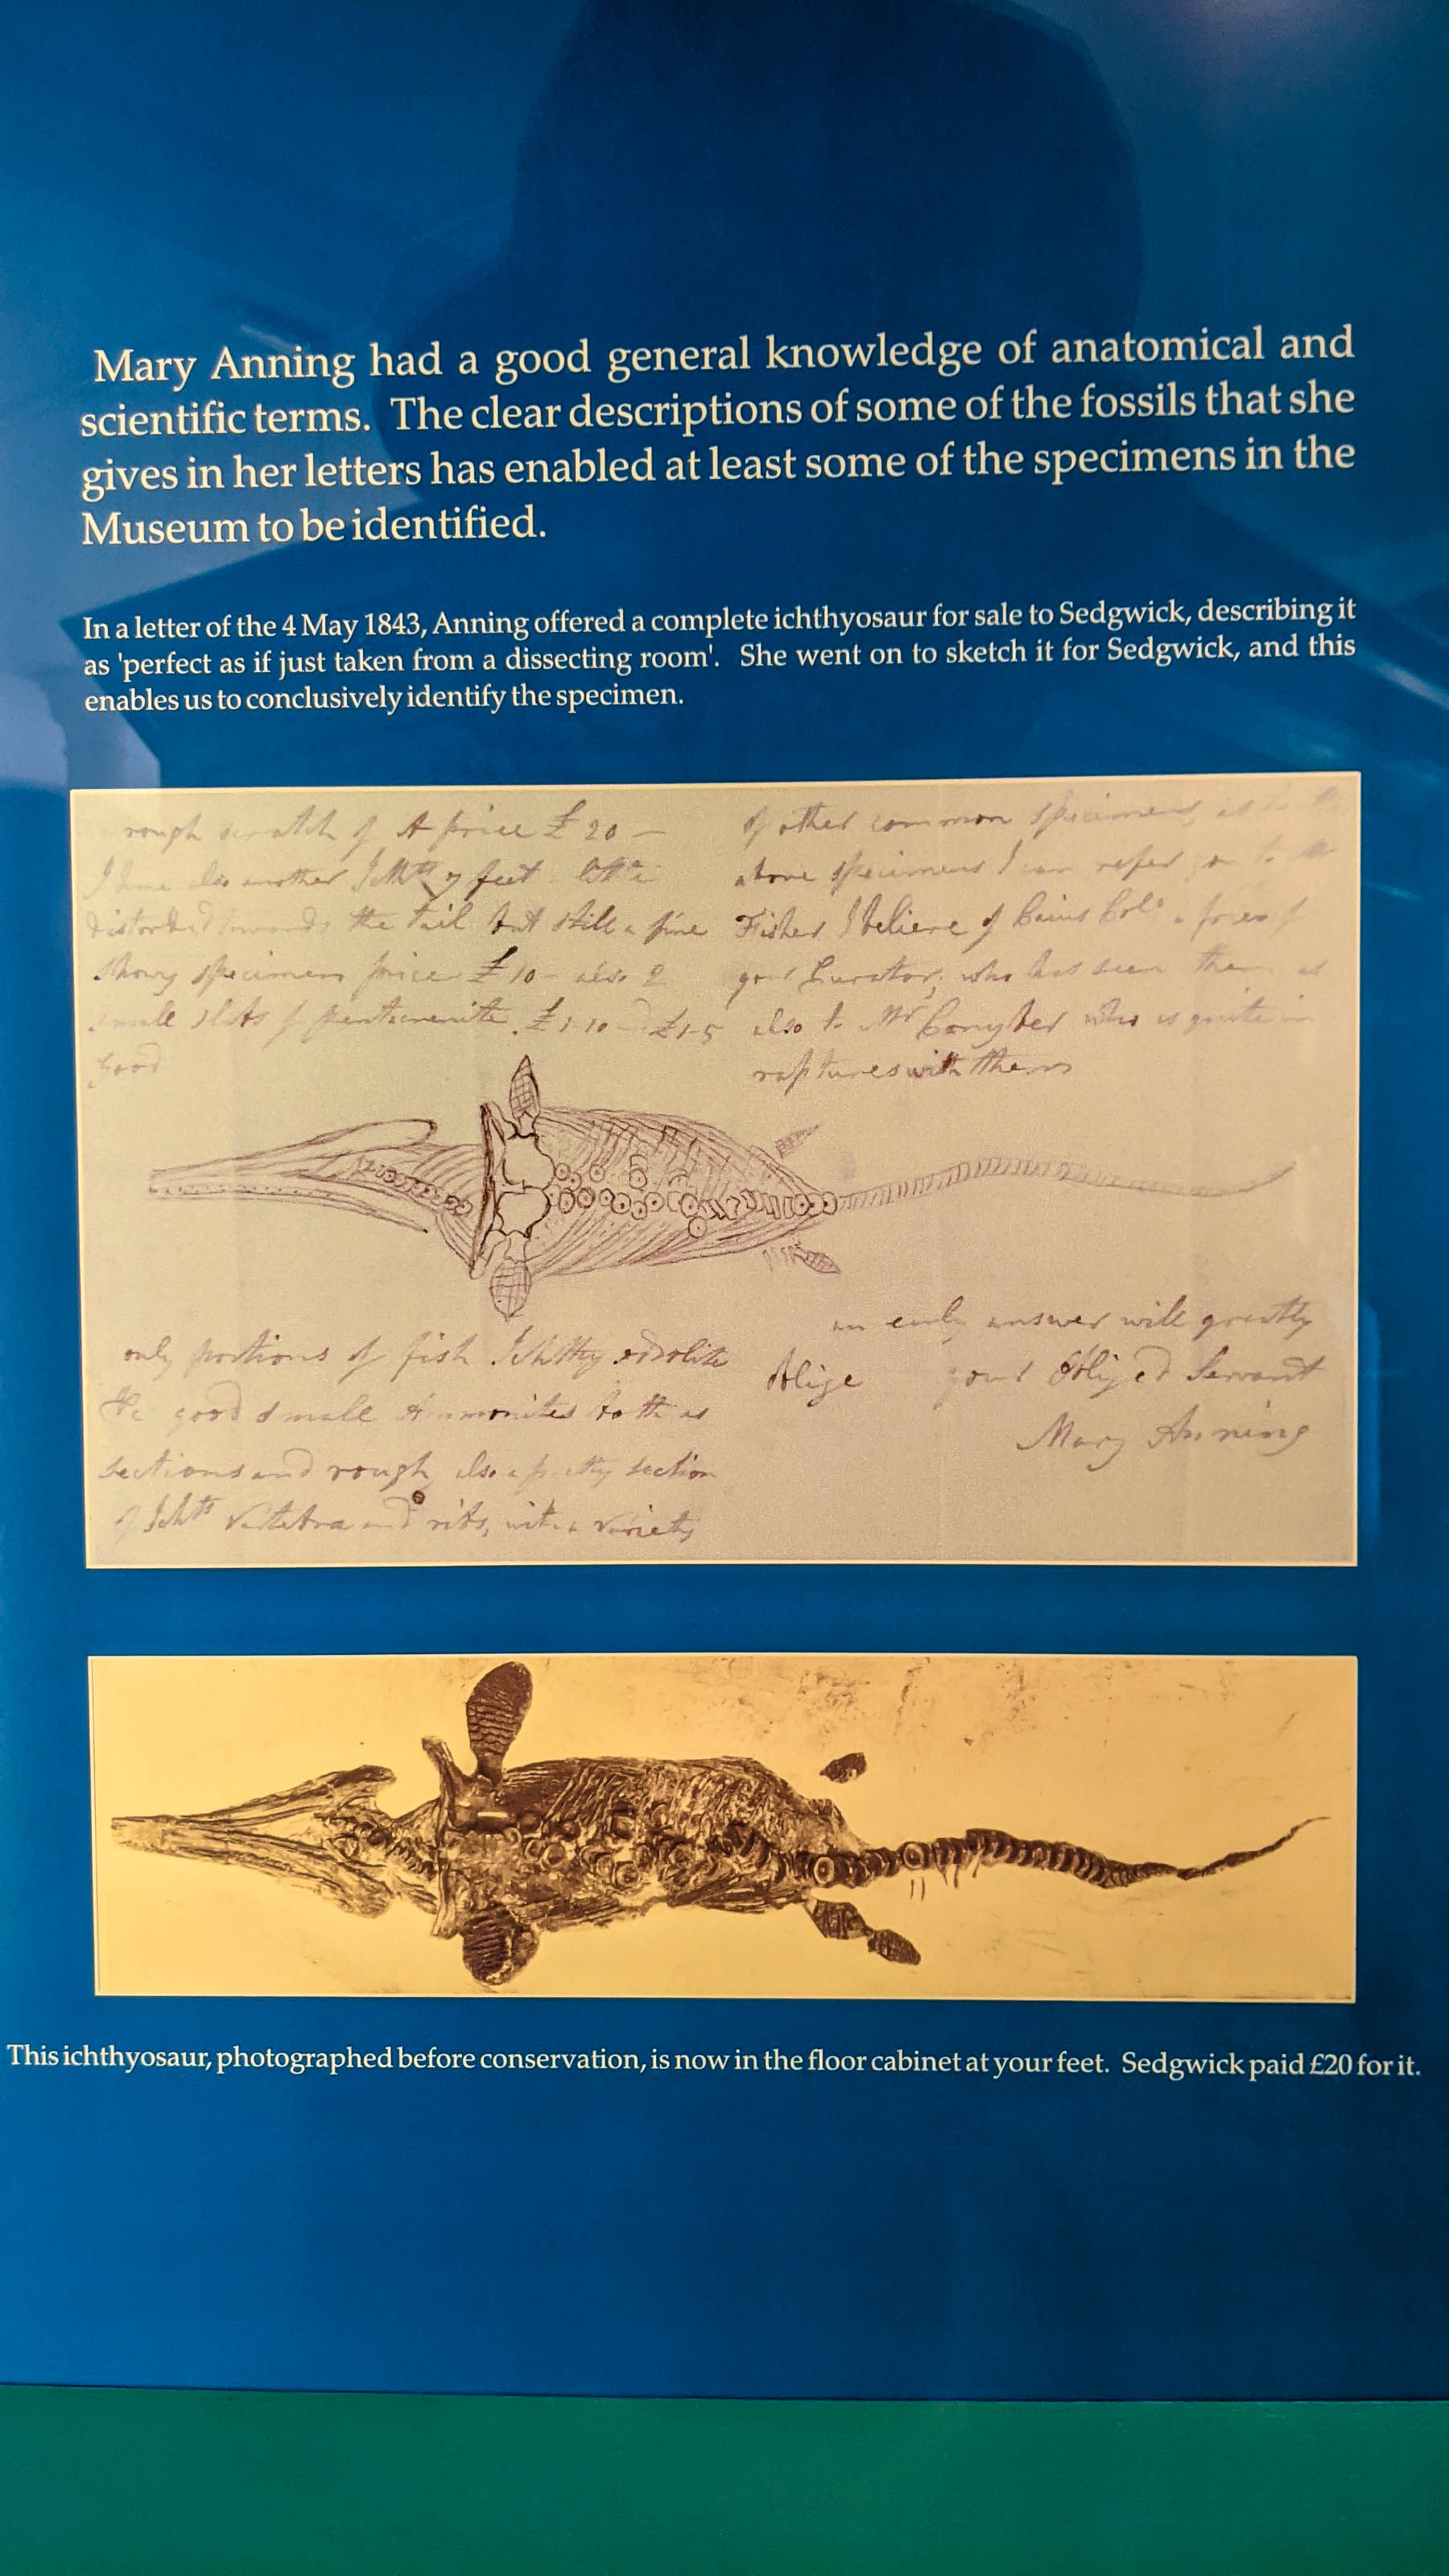 Mary Anning had a good general knowledge of anatomical and
scientific terms. The clear descriptions of some of the fossils that she
gives in her letters has enabled at least some of the specimens in the
Museum to be identified.
In a letter of the 4 May 1843, Anning offered a complete ichthyosaur for sale to Sedgwick, describing it
as 'perfect as if just taken from a dissecting room'. She went on to sketch it for Sedgwick, and this
enables us to conclusively identify the specimen.
rough scratch of A price £20 –
I have also another Ichthy 7 feet little
distorted towards the tail but still a fine
showy specimen price £10 – also 2
small slabs of £1-10 £1-5
good
of other common specimens, as
above specimens I can refer you to
Fisher I believe of friend
your Curator, who has seen them
also to Mr who is quite in
raptures with them
only portions of fish Ichthy
good small Ammonites both as
sections and rough, also a pretty section
of Ichts vertebra and ribs, with a variety
an early answer will greatly
oblige your Obliged Servant
Mary Anning
This ichthyosaur, photographed before conservation, is now in the floor cabinet at your feet. Sedgwick paid £20 for it.